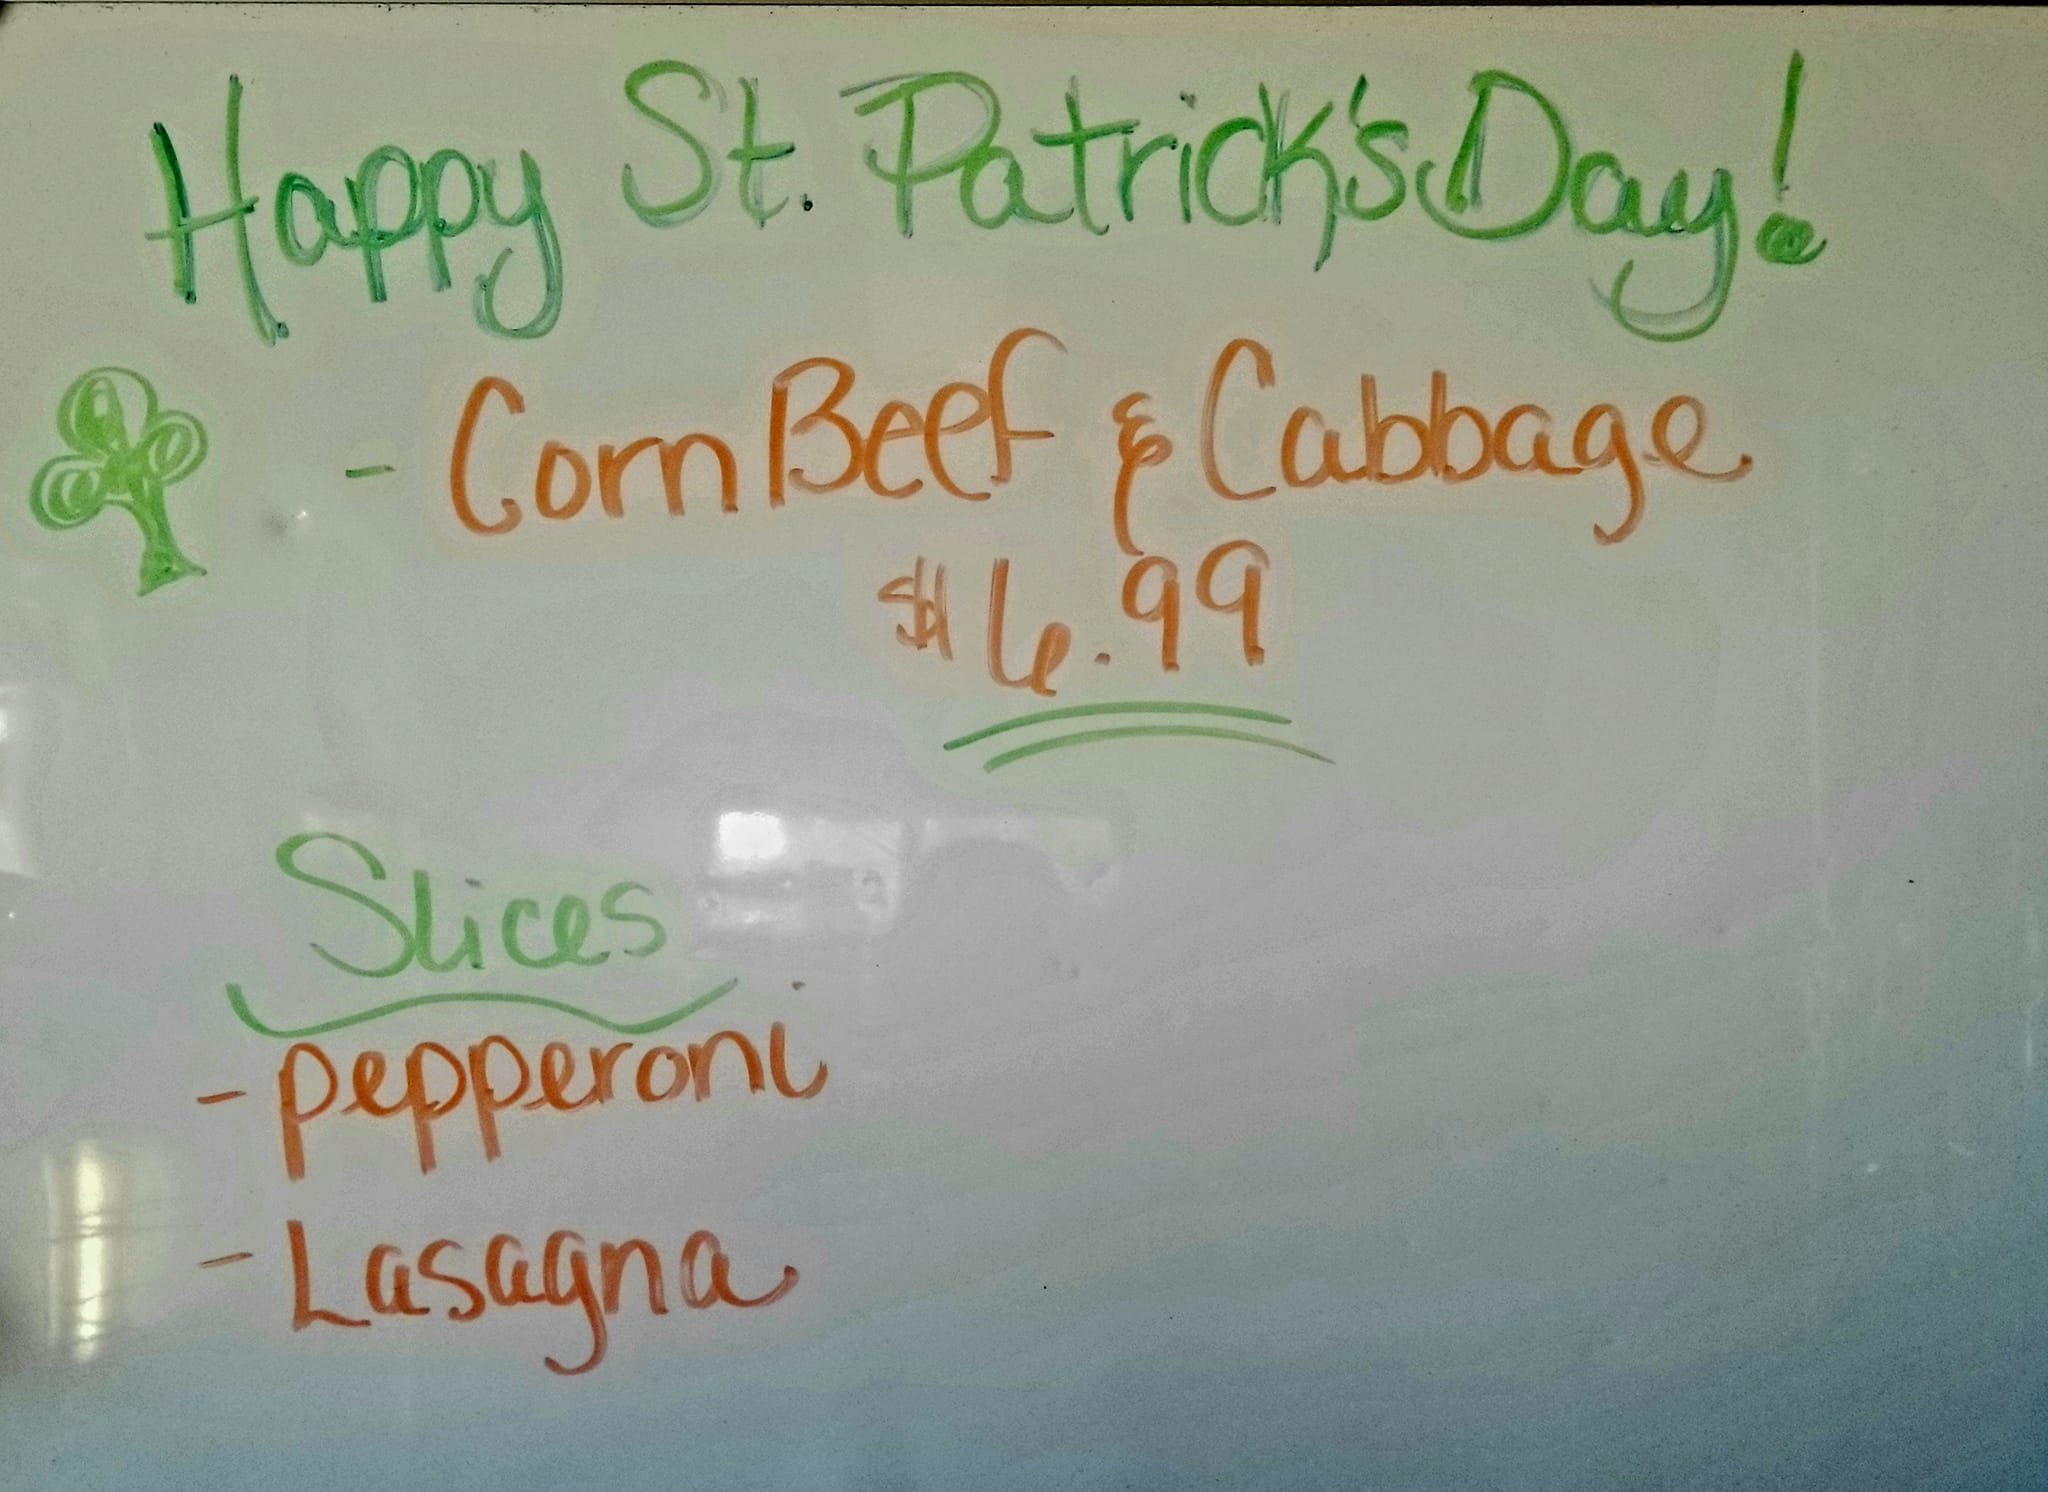 Happy St. Patrick's Day!
- Corn Beef & Cabbage
$6.99
Slices
- pepperoni
- Lasagna